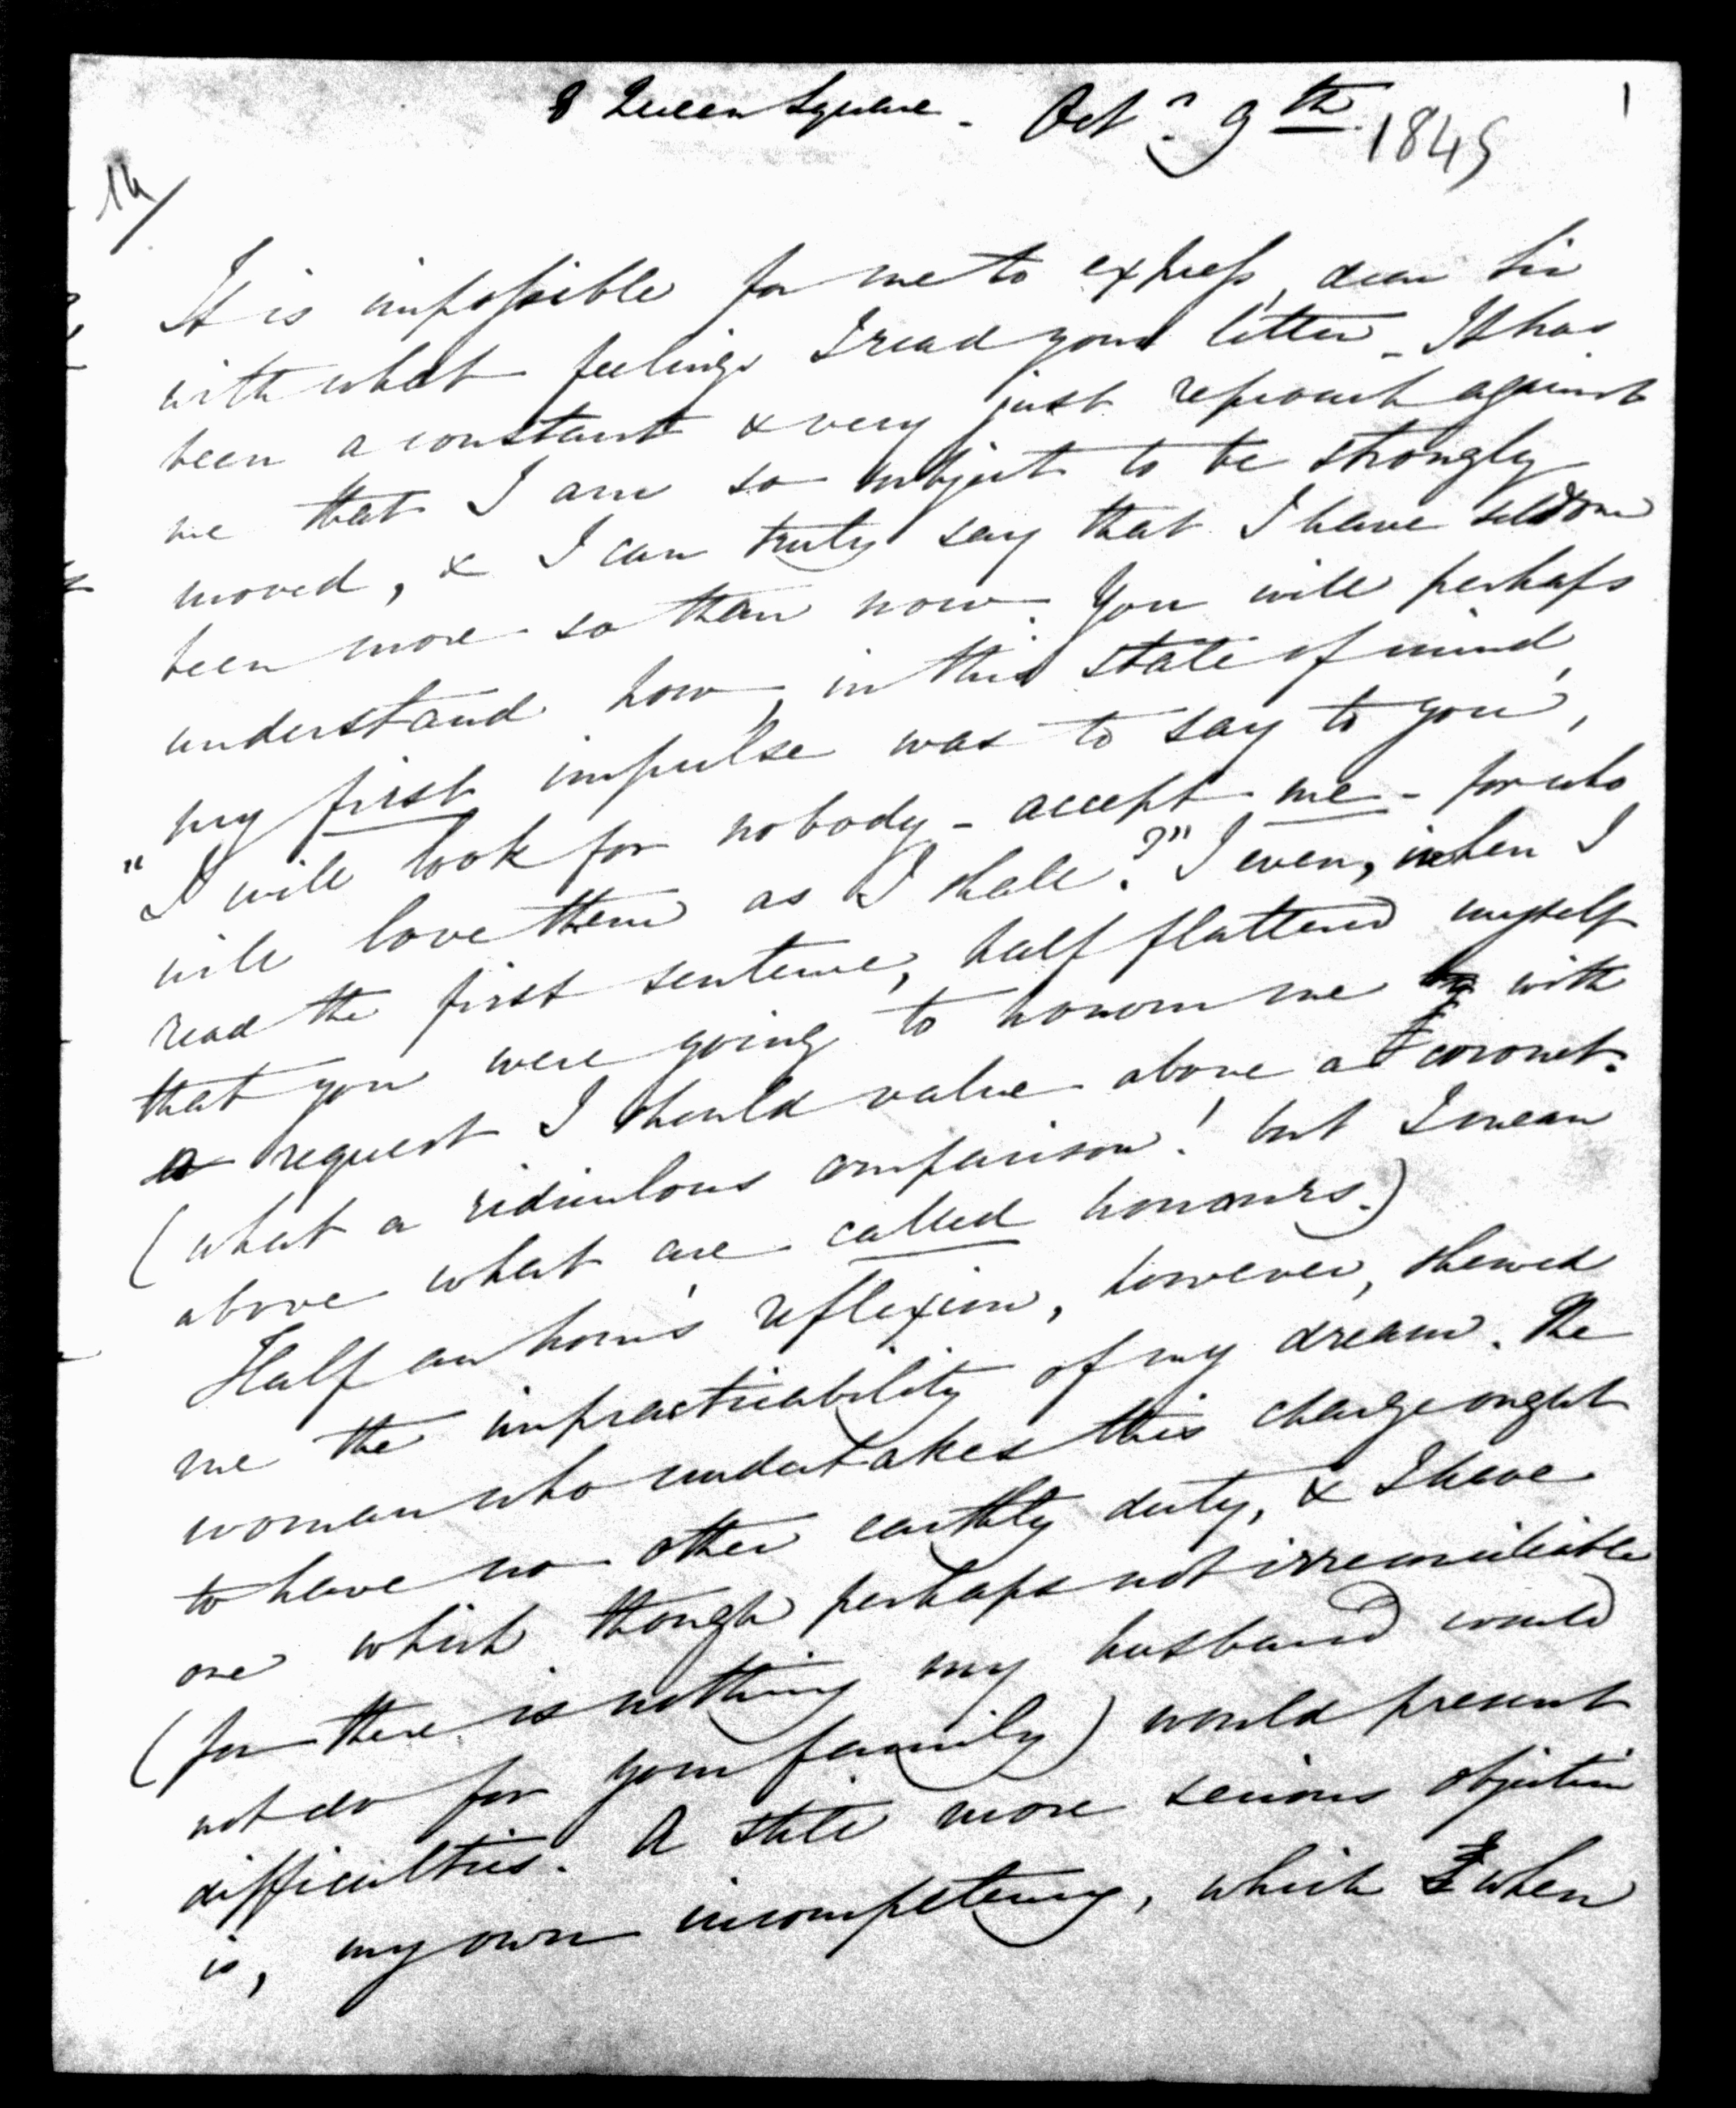 8 Queen Square - Octr. 9th 1845
1
14/
It is impossible for me to express, dear Sir
with what feelings I read your letter - It has
been a constant & very just reproach against
me that I am so subject to be strongly
moved, & I can truly say that I have seldom
been more so than now. You will perhaps
understand how, in this state of mind,
my first impulse was to say to you,
"I will look for nobody - accept me - for who
will love them as I shall?" I even, when I
read the first sentence, half flattered myself
that you were going to honour me with
a request I should value above a coronet.
(what a ridiculous comparison! but I mean
above what are called honours.)
Half an hour's reflexion, however, shewed
me the impracticability of my dream. The
woman who undertakes this charge ought
to have no other earthly duty, & I have
one which though perhaps not irreconcileable
(for there is nothing my husband would
not do for your family) would present
difficulties. A still more serious objection
is, my own incompetency, which when